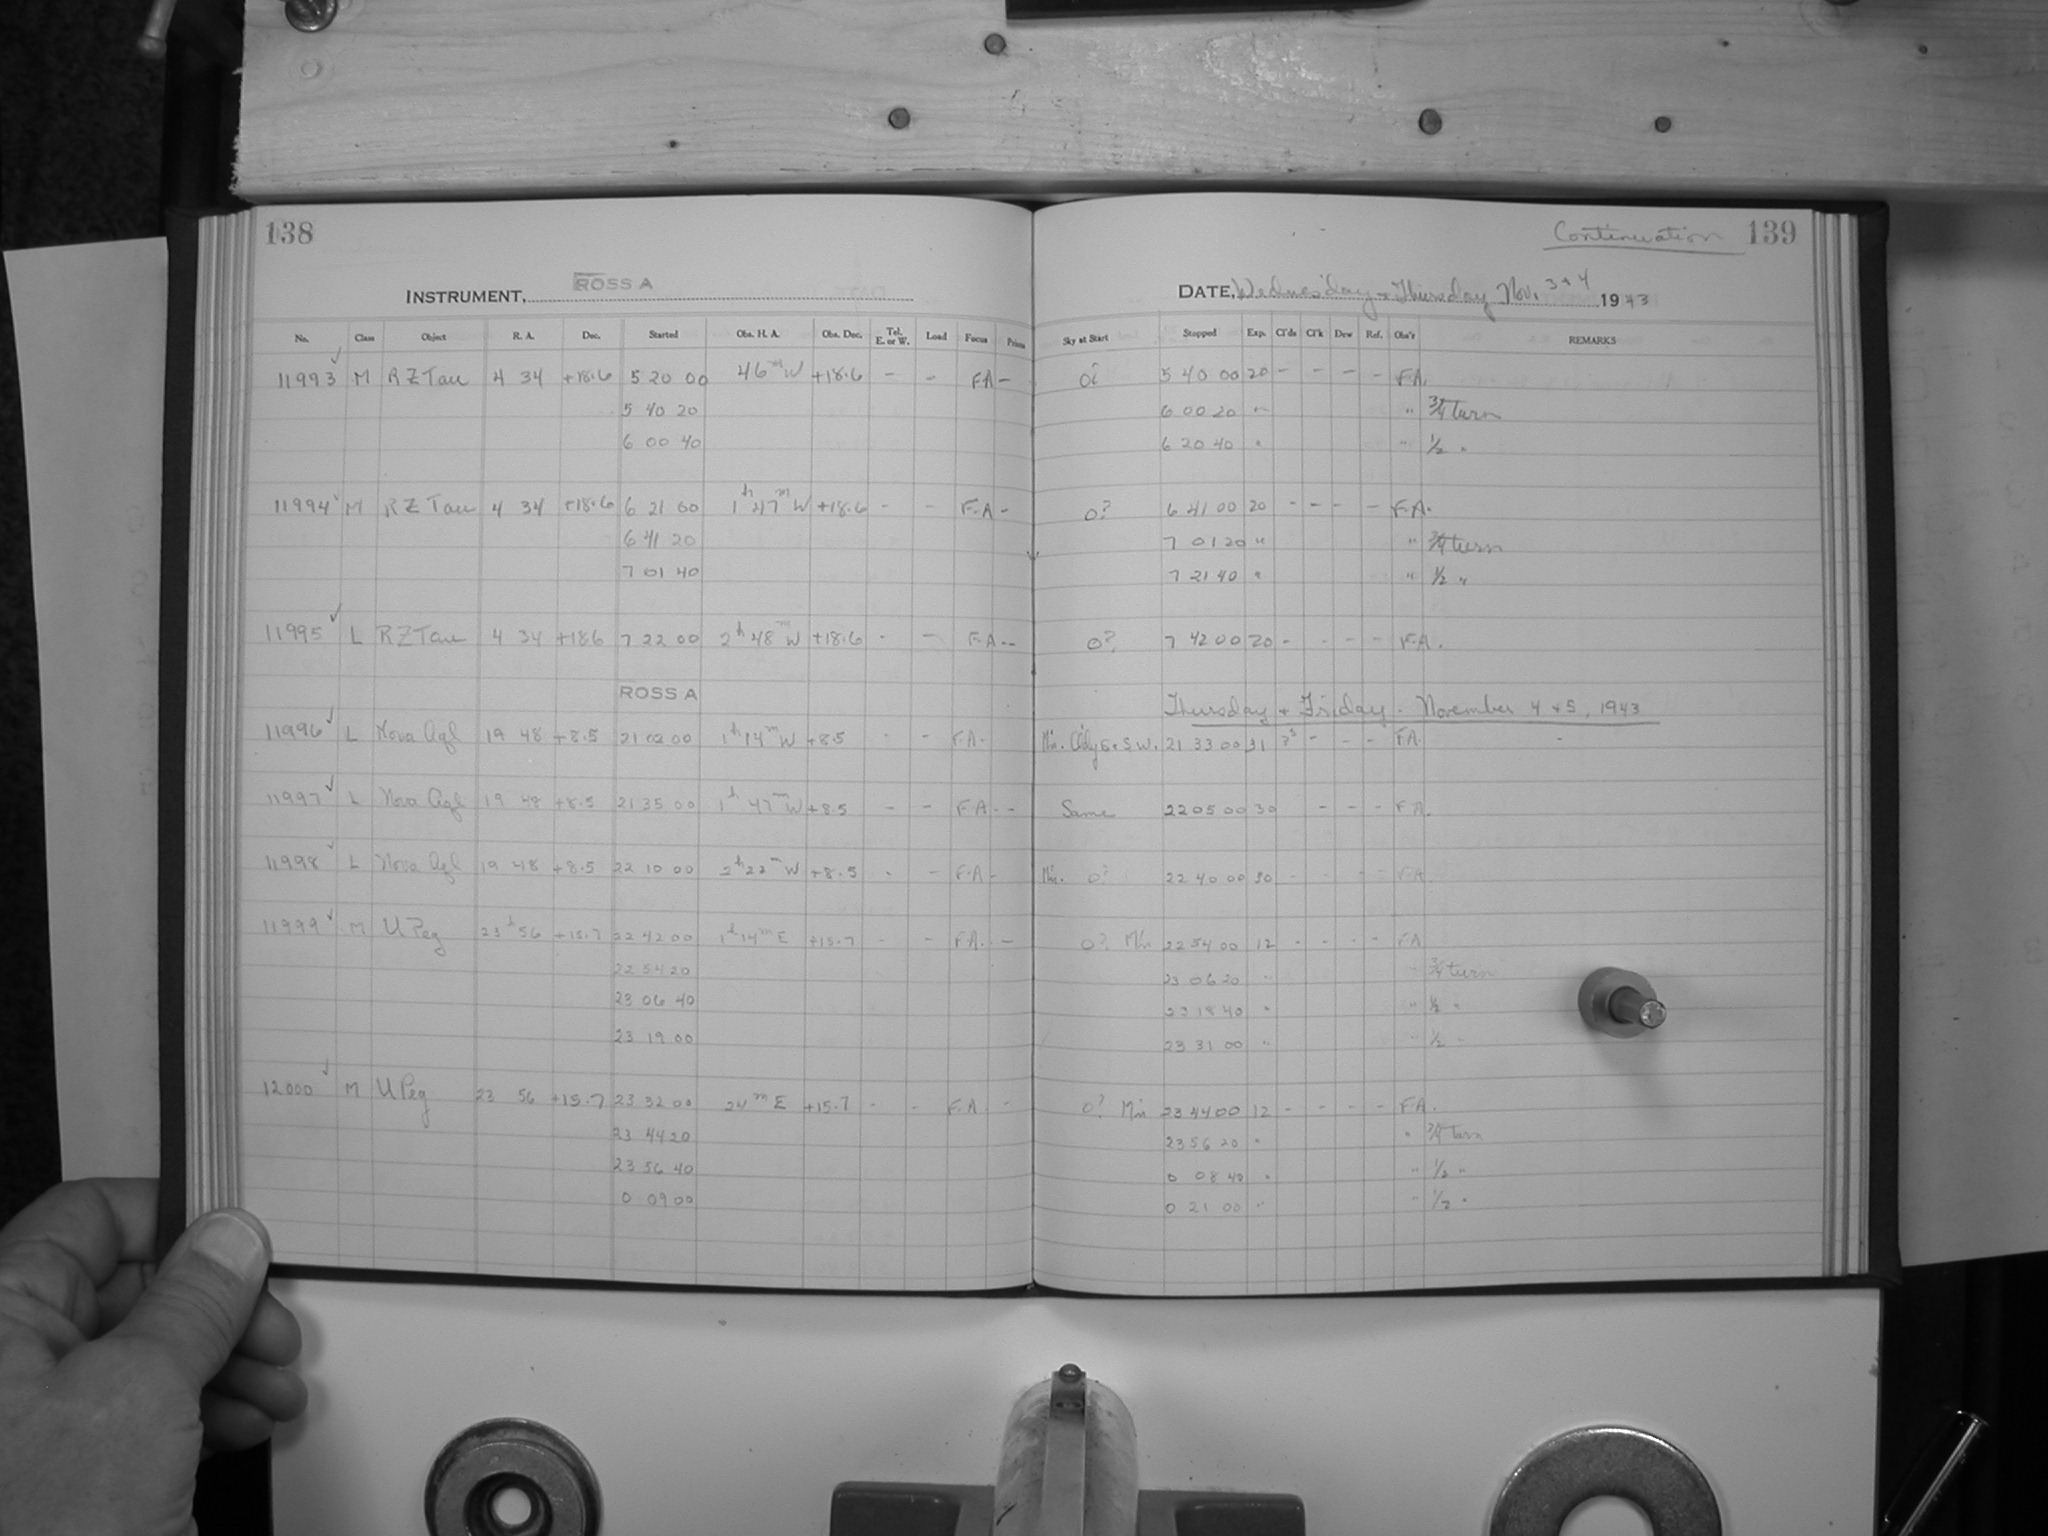 138
INSTRUMENT, ROSS A
No. Class Object R. A. Dec. Started Obs. H. A. Obs. Dec. Tel. E. or W. Load Focus Prism
11993 ✓ M RZ Tau 4 34 +18.6 5 20 00 46ᵐ W +18.6 - - F.A -
5 40 20
6 00 40
11994 ✓ M RZ Tau 4 34 +18.6 6 21 00 1ʰ 47ᵐ W +18.6 - - F.A -
6 41 20
7 01 40
11995 ✓ L RZ Tau 4 34 +18.6 7 22 00 2ʰ 48ᵐ W +18.6 - - F.A --
ROSS A
11996 ✓ L Nova Aql 19 48 +8.5 21 02 00 1ʰ 14ᵐ W +8.5 - - F.A.
11997 ✓ L Nova Aql 19 48 +8.5 21 35 00 1ʰ 47ᵐ W +8.5 - - F.A. --
11998 ✓ L Nova Aql 19 48 +8.5 22 10 00 2ʰ 22ᵐ W +8.5 - - F.A -
11999 ✓ M U Peg 23ʰ 56 +15.7 22 42 00 1ʰ 14ᵐ E +15.7 - - F.A. -
22 54 20
23 06 40
23 19 00
12000 ✓ M U Peg 23 56 +15.7 23 32 00 24ᵐ E +15.7 - - F.A -
23 44 20
23 56 40
0 09 00
Continuation 139
DATE, Wednesday + Thursday Nov. 3 + 4 1943
Sky at Start Stopped Exp. Cl'ds Cl'k Dew Ref. Obs'r REMARKS
0? 5 40 00 20 - - - - F.A.
6 00 20 " " 3/4 turn
6 20 40 " " 1/2 "
0? 6 41 00 20 - - - - F.A.
7 01 20 " " 3/4 turn
7 21 40 " " 1/2 "
0? 7 42 00 20 - - - - F.A.
Thursday + Friday - November 4 + 5, 1943
S. W. 21 33 00 31 - - - F.A.
Same 22 05 00 30 - - - F.A.
0? 22 40 00 30 - - - - F.A
0? 22 54 00 12 - - - - F.A
23 06 20 " " 3/4 turn
23 18 40 " " 1/2 "
23 31 00 " " 1/2 "
0? 23 44 00 12 - - - - F.A.
23 56 20 " " 3/4 turn
0 08 40 " " 1/2 "
0 21 00 " " 1/2 "